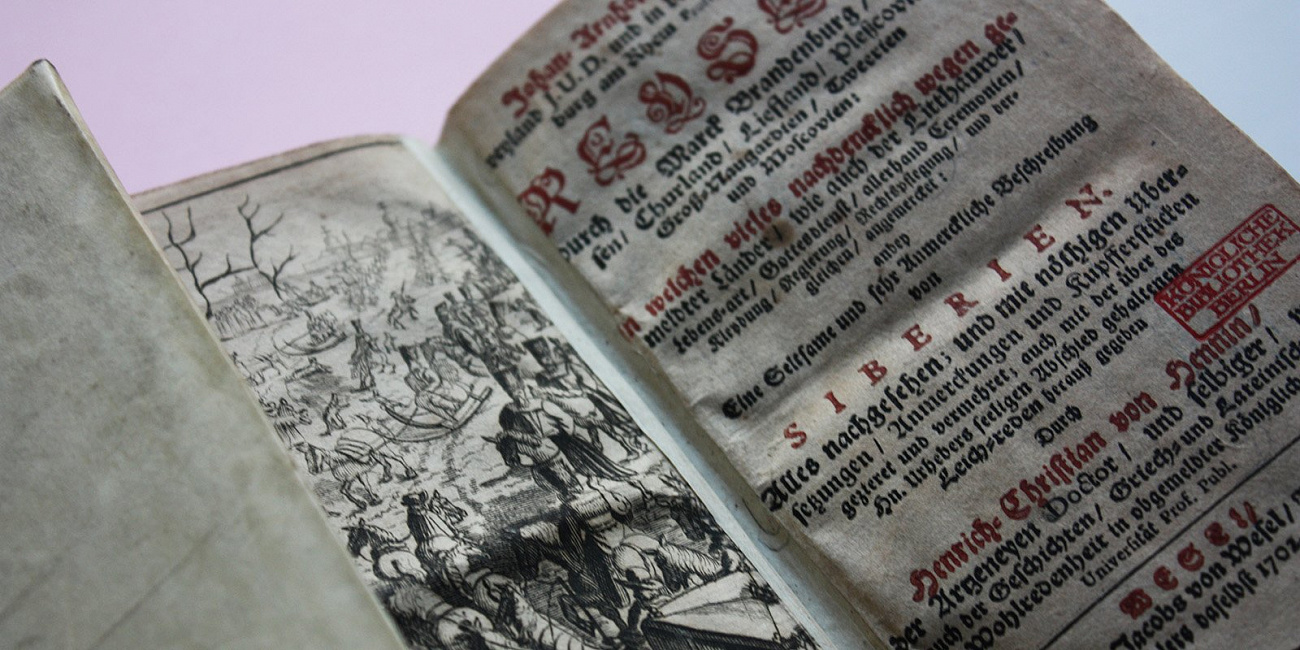 Johan- Arnhol
J.U.D. und in
burg am Rhein
R E Y S E
durch die Marck Brandenburg /
sen / Churland / Liefland / Pleßcovi
Groß-Naugardien / Tweerien
und Moscovien:
In welchen vieles nachdencklich wegen ge-
meldter Länder / wie auch der Litthauwer /
Lebens-art / Gottesdienst / allerhand Ceremonien /
Kleydung / Regierung / Rechtspflegung / und der-
gleichen / angemercket:
anbey
Eine Seltsame und sehr Anmerckliche Beschreibung
von
S I B E R I E N.
Alles nachgesehen; und mit nöthigen Über-
setzungen / Anmerckungen und Kupfferstücken
gezieret und vermehret; auch mit der über des
Hn. Urhebers seeligen Abschied gehaltenen
Leich-reden herauß gegeben
Durch
Henrich-Christian von Hennin /
der Artzeney Doctor / und selbiger /
auch der Geschichten / Griech- und Lateinisch
Wohlredenheit in obgemeldter Königlich
Universität Prof. Publ.
WESEL /
Jacobs von Wesel /
daselbst 1702
KÖNIGLICHE
BIBLIOTHEK
BERLIN